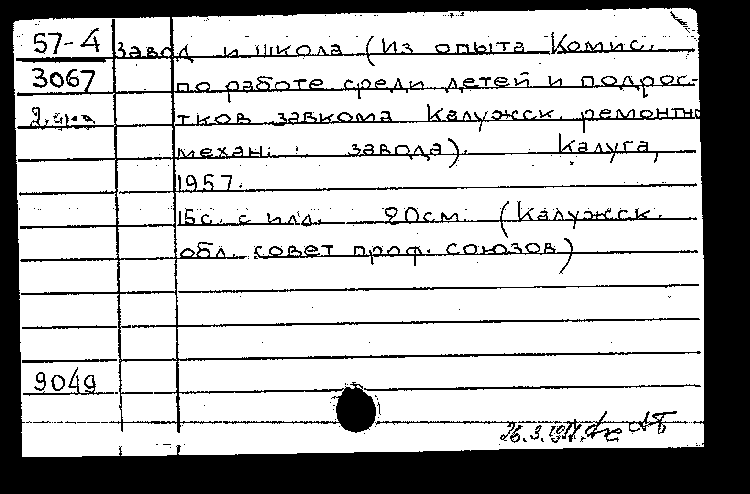 57-4 Завод и школа (Из опыта Комис.
3067 по работе среди детей и подрос-
тков завкома Калужск. ремонтно
механ. завода). Калуга,
1957.
15с. с илл. 20см. (Калужск.
обл. совет проф. союзов)
9049
26.3.